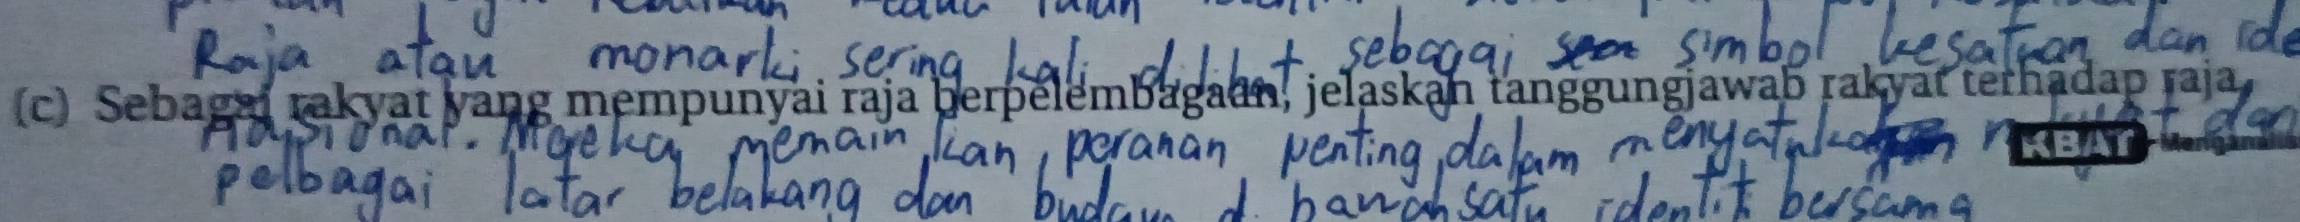 Raja atau monarki sering kali dilihat sebagai simbol kesatuan dan ide
(c) Sebagai rakyat yang mempunyai raja berpelembagaan, jelaskan tanggungjawab rakyat terhadap raja.
nasional. Mereka memainkan peranan penting dalam menyatukan dan
KBAT Menganalisis
pelbagai latar belakang dan budaya di bawah satu identiti bersama